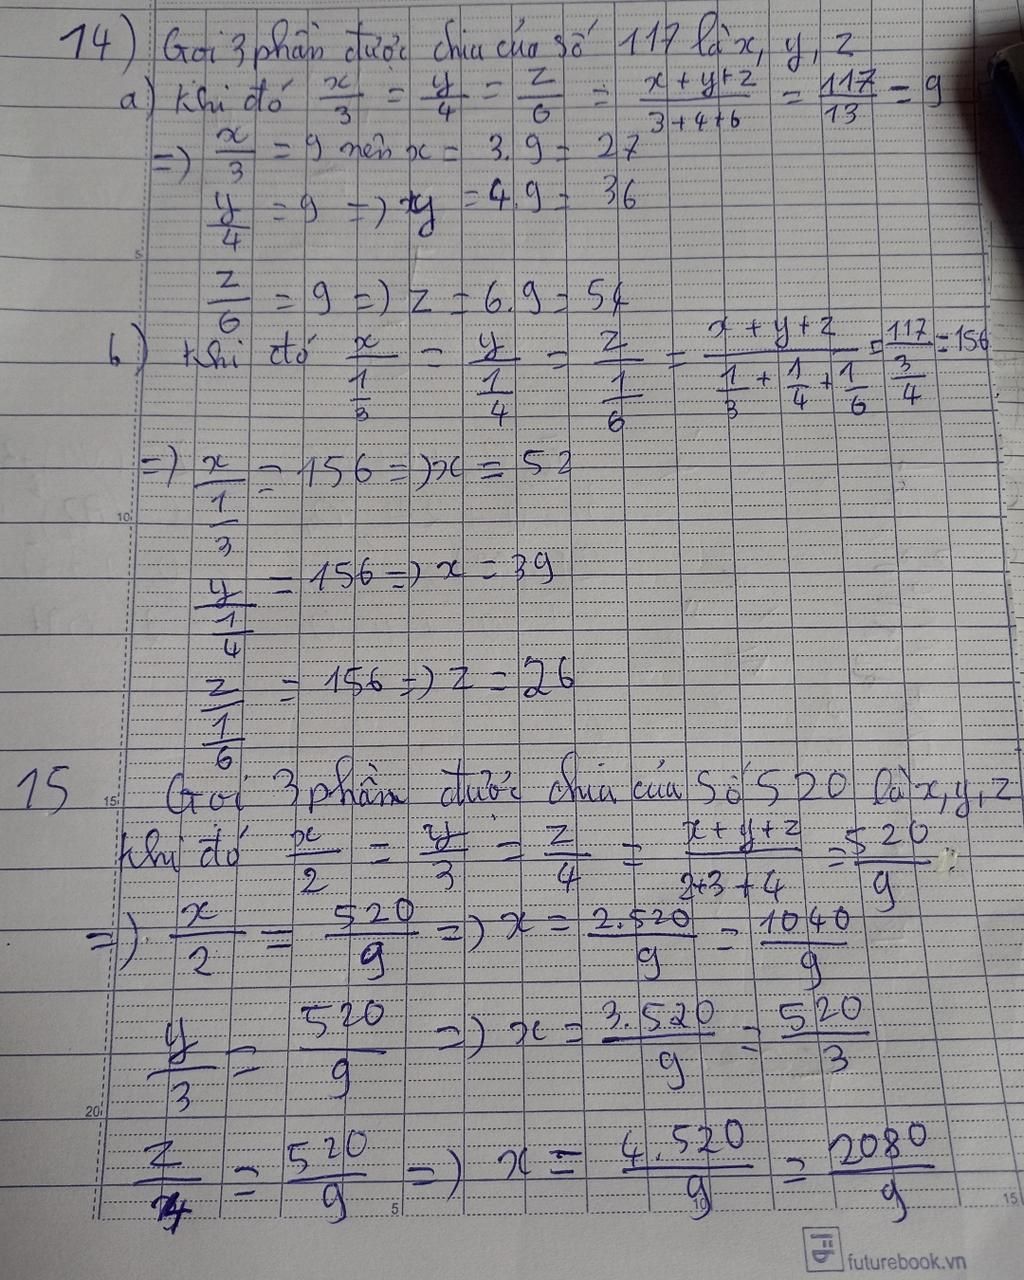 14) Gọi 3 phần được chia của số 117 là x, y, z
a) Khi đó x/3 = y/4 = z/6 = (x+y+z)/(3+4+6) = 117/13 = 9
=> x/3 = 9 nên x = 3.9 = 27
y/4 = 9 => y = 4.9 = 36
5
z/6 = 9 => z = 6.9 = 54
b) Khi đó x/(1/3) = y/(1/4) = z/(1/6) = (x+y+z)/(1/3 + 1/4 + 1/6) = 117/(3/4) = 156
=> x/(1/3) = 156 => x = 52
10
y/(1/4) = 156 => x = 39
z/(1/6) = 156 => z = 26
15 Gọi 3 phần được chia của số 520 là x, y, z
15
Khi đó x/2 = y/3 = z/4 = (x+y+z)/(2+3+4) = 520/9
=> x/2 = 520/9 => x = 2.520/9 = 1040/9
y/3 = 520/9 => x = 3.520/9 = 520/3
20
z/4 = 520/9 => x = 4.520/9 = 2080/9
5 10 15
futurebook.vn